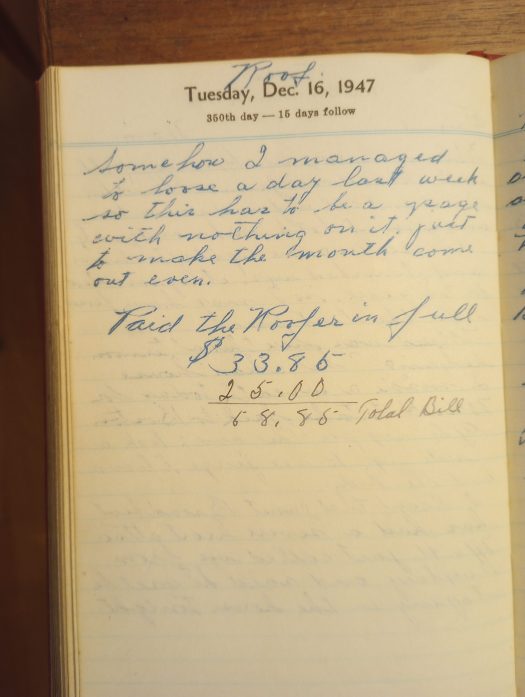 Roof.
Tuesday, Dec. 16, 1947
350th day — 15 days follow
Somehow I managed
to loose a day last week
so this has to be a page
with nothing on it, just
to make the month come
out even.
Paid the Roofer in full
$33.85
25.00
58.85 Total Bill